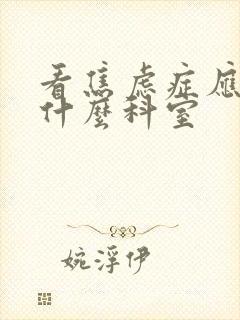 看焦虑症应
什麼科室
婉浮伊